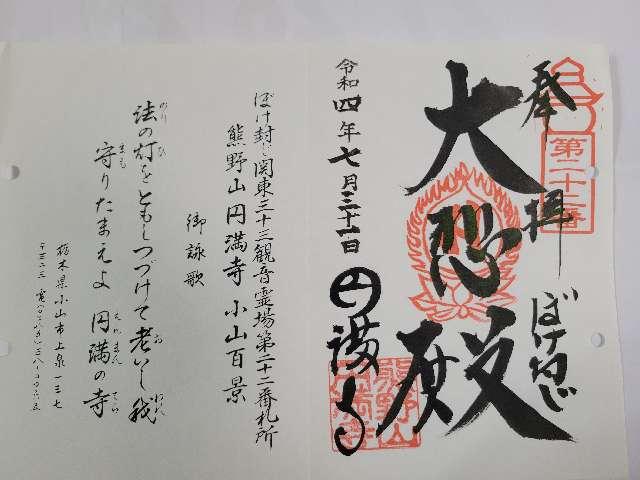 奉拝
第二十二番
ぼけ封じ
大悲殿
円満寺
熊野山
令和四年七月三十一日
ぼけ封じ関東三十三観音霊場第二十二番札所
熊野山円満寺 小山百景
御詠歌
法の灯をともしつづけて老いし我
守りたまえよ 円満の寺
栃木県小山市上泉一三七